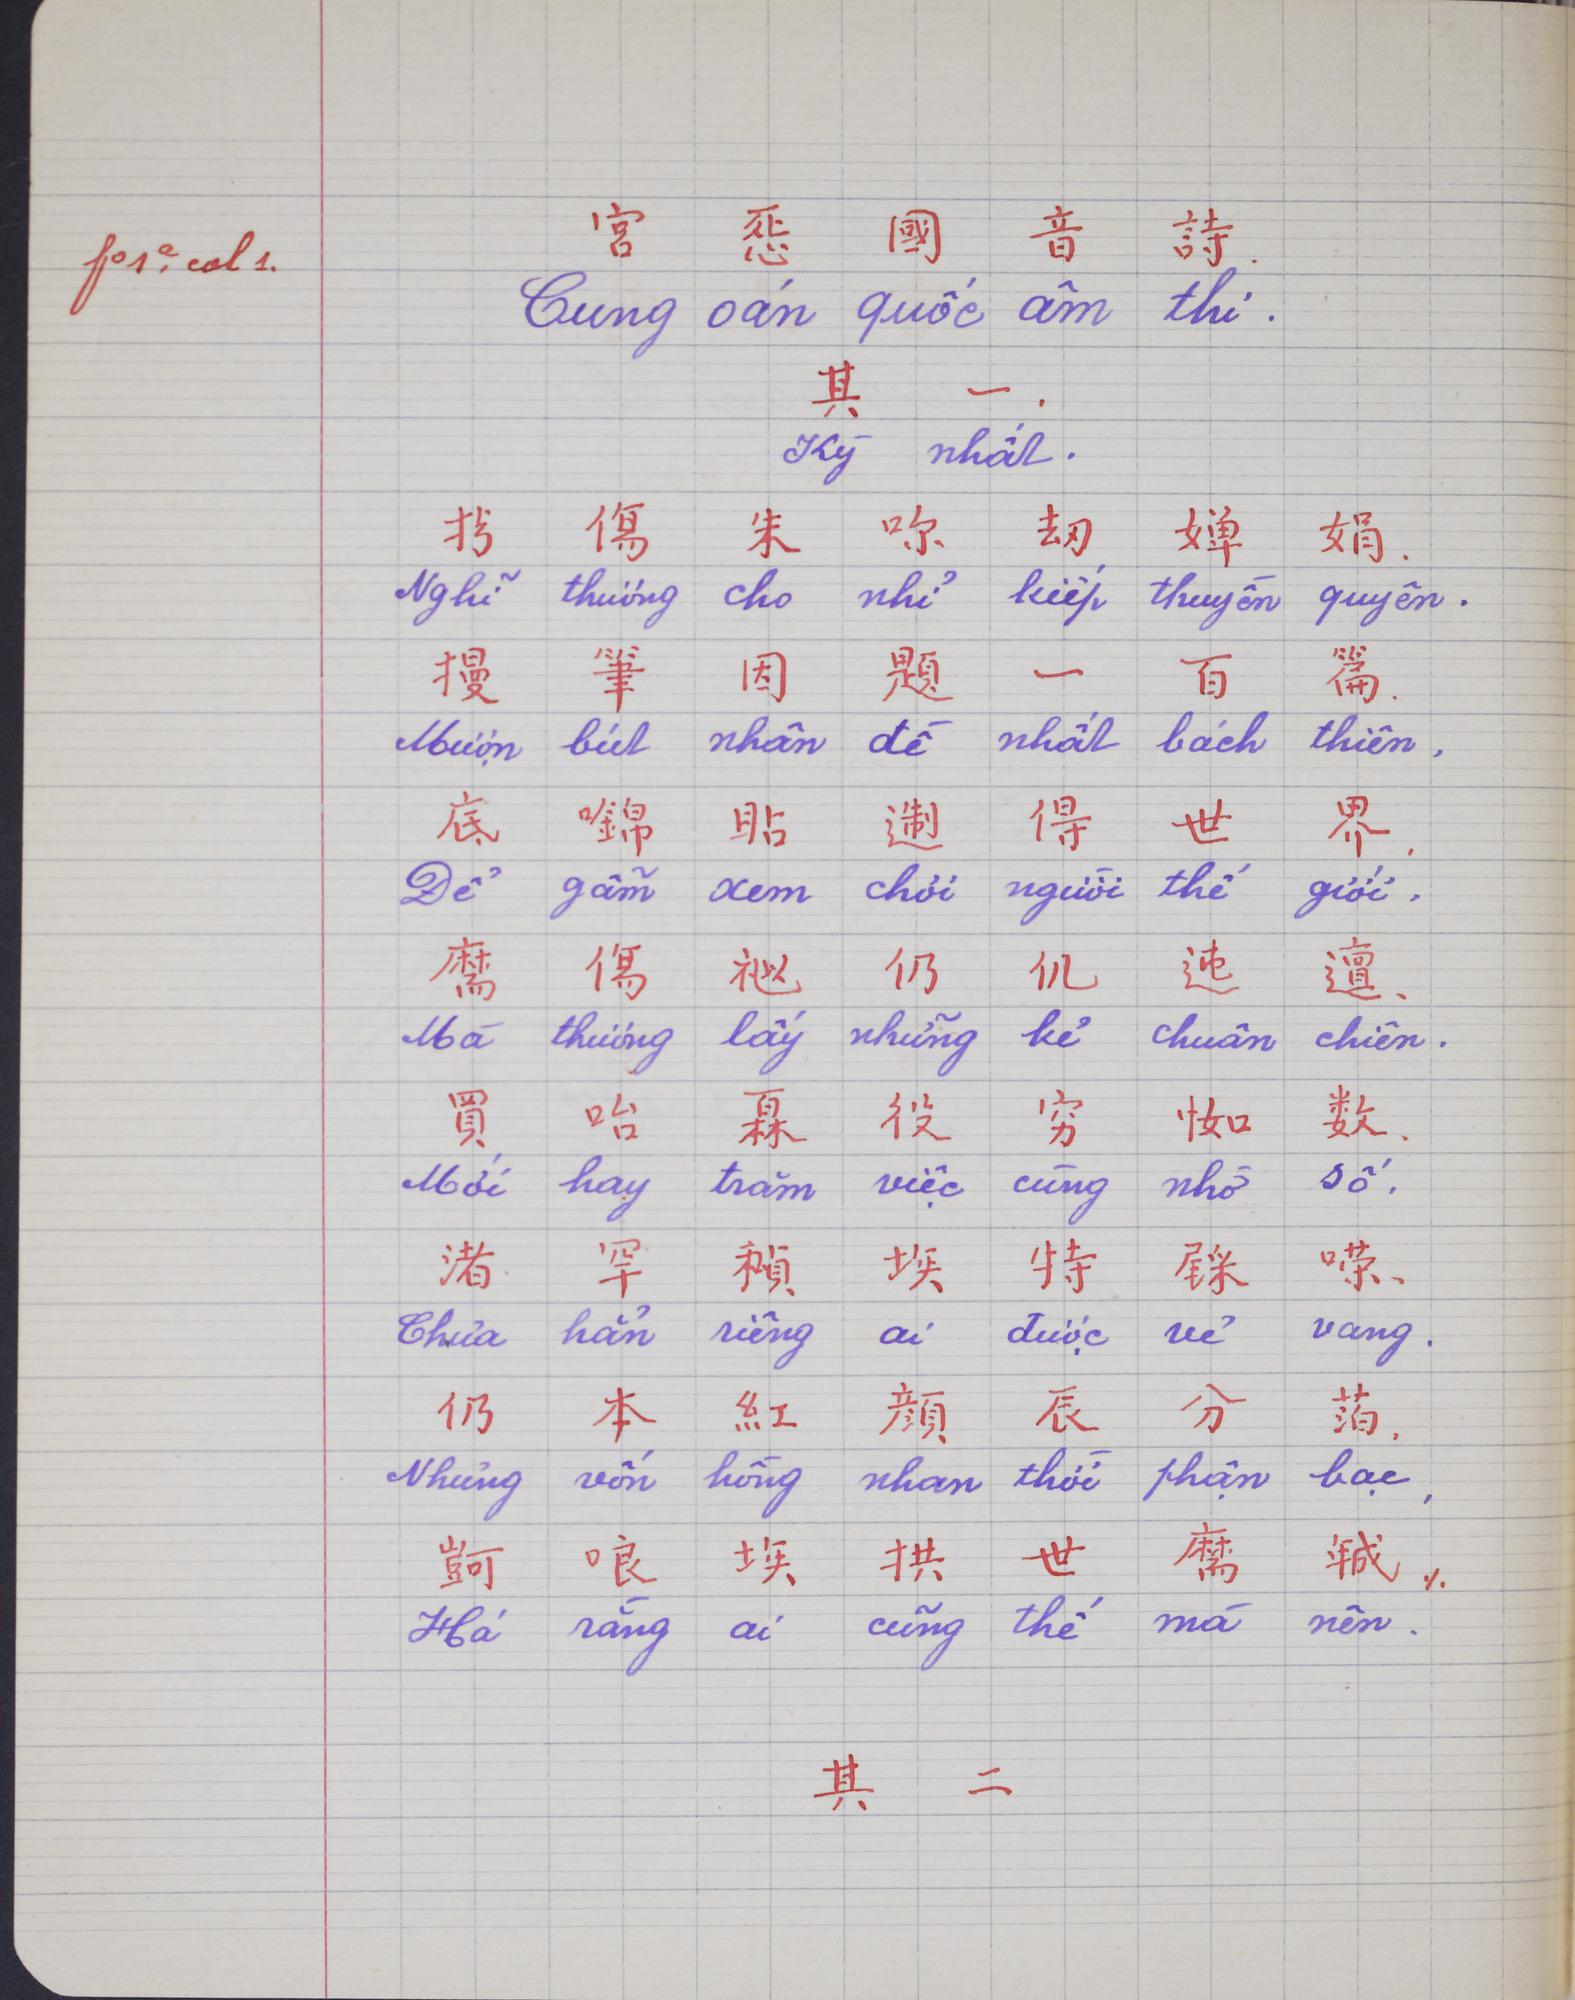 fo 1a. col 1.
宮 怨 國 音 詩.
Cung oán quốc âm thi.
其 一.
Kỳ nhất.
傷 朱 劫 嬋 娟.
Nghĩ thương cho nhỉ kiếp thuyền quyên.
筆 因 題 一 百 篇.
Mượn bút nhân đề nhất bách thiên.
底 㗜 貼 得 世 界.
Để gẫm xem chơi người thế giới.
傷 仍 仉 迍 邅.
Mà thương lấy những kẻ chuân chiên.
買 咍 役 窮 洳 数.
Mới hay trăm việc cùng nhờ số.
渚 罕 埃 特 𡂰
Chưa hẳn riêng ai được vẻ vang.
仍 本 紅 顏 辰 分 萡.
Nhưng vốn hồng nhan thời phận bạc,
哏 埃 拱 世
Há rằng ai cũng thế mà nên.
其 二